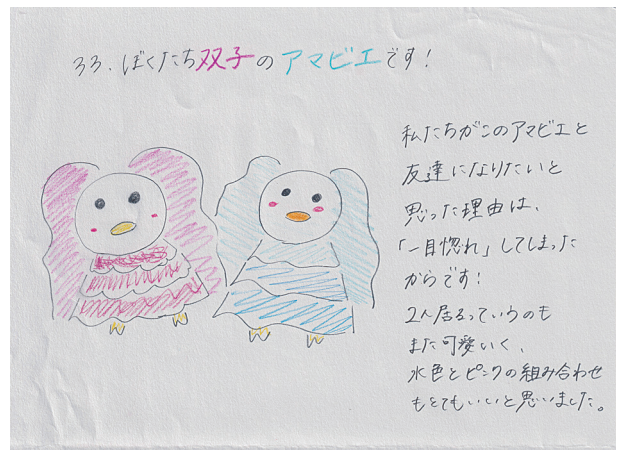 33. ぼくたち双子のアマビエです!
私たちがこのアマビエと
友達になりたいと
思った理由は、
「一目惚れ」してしまった
からです!
2人居るっていうのも
また可愛いく、
水色とピンクの組み合わせ
もとてもいいと思いました。